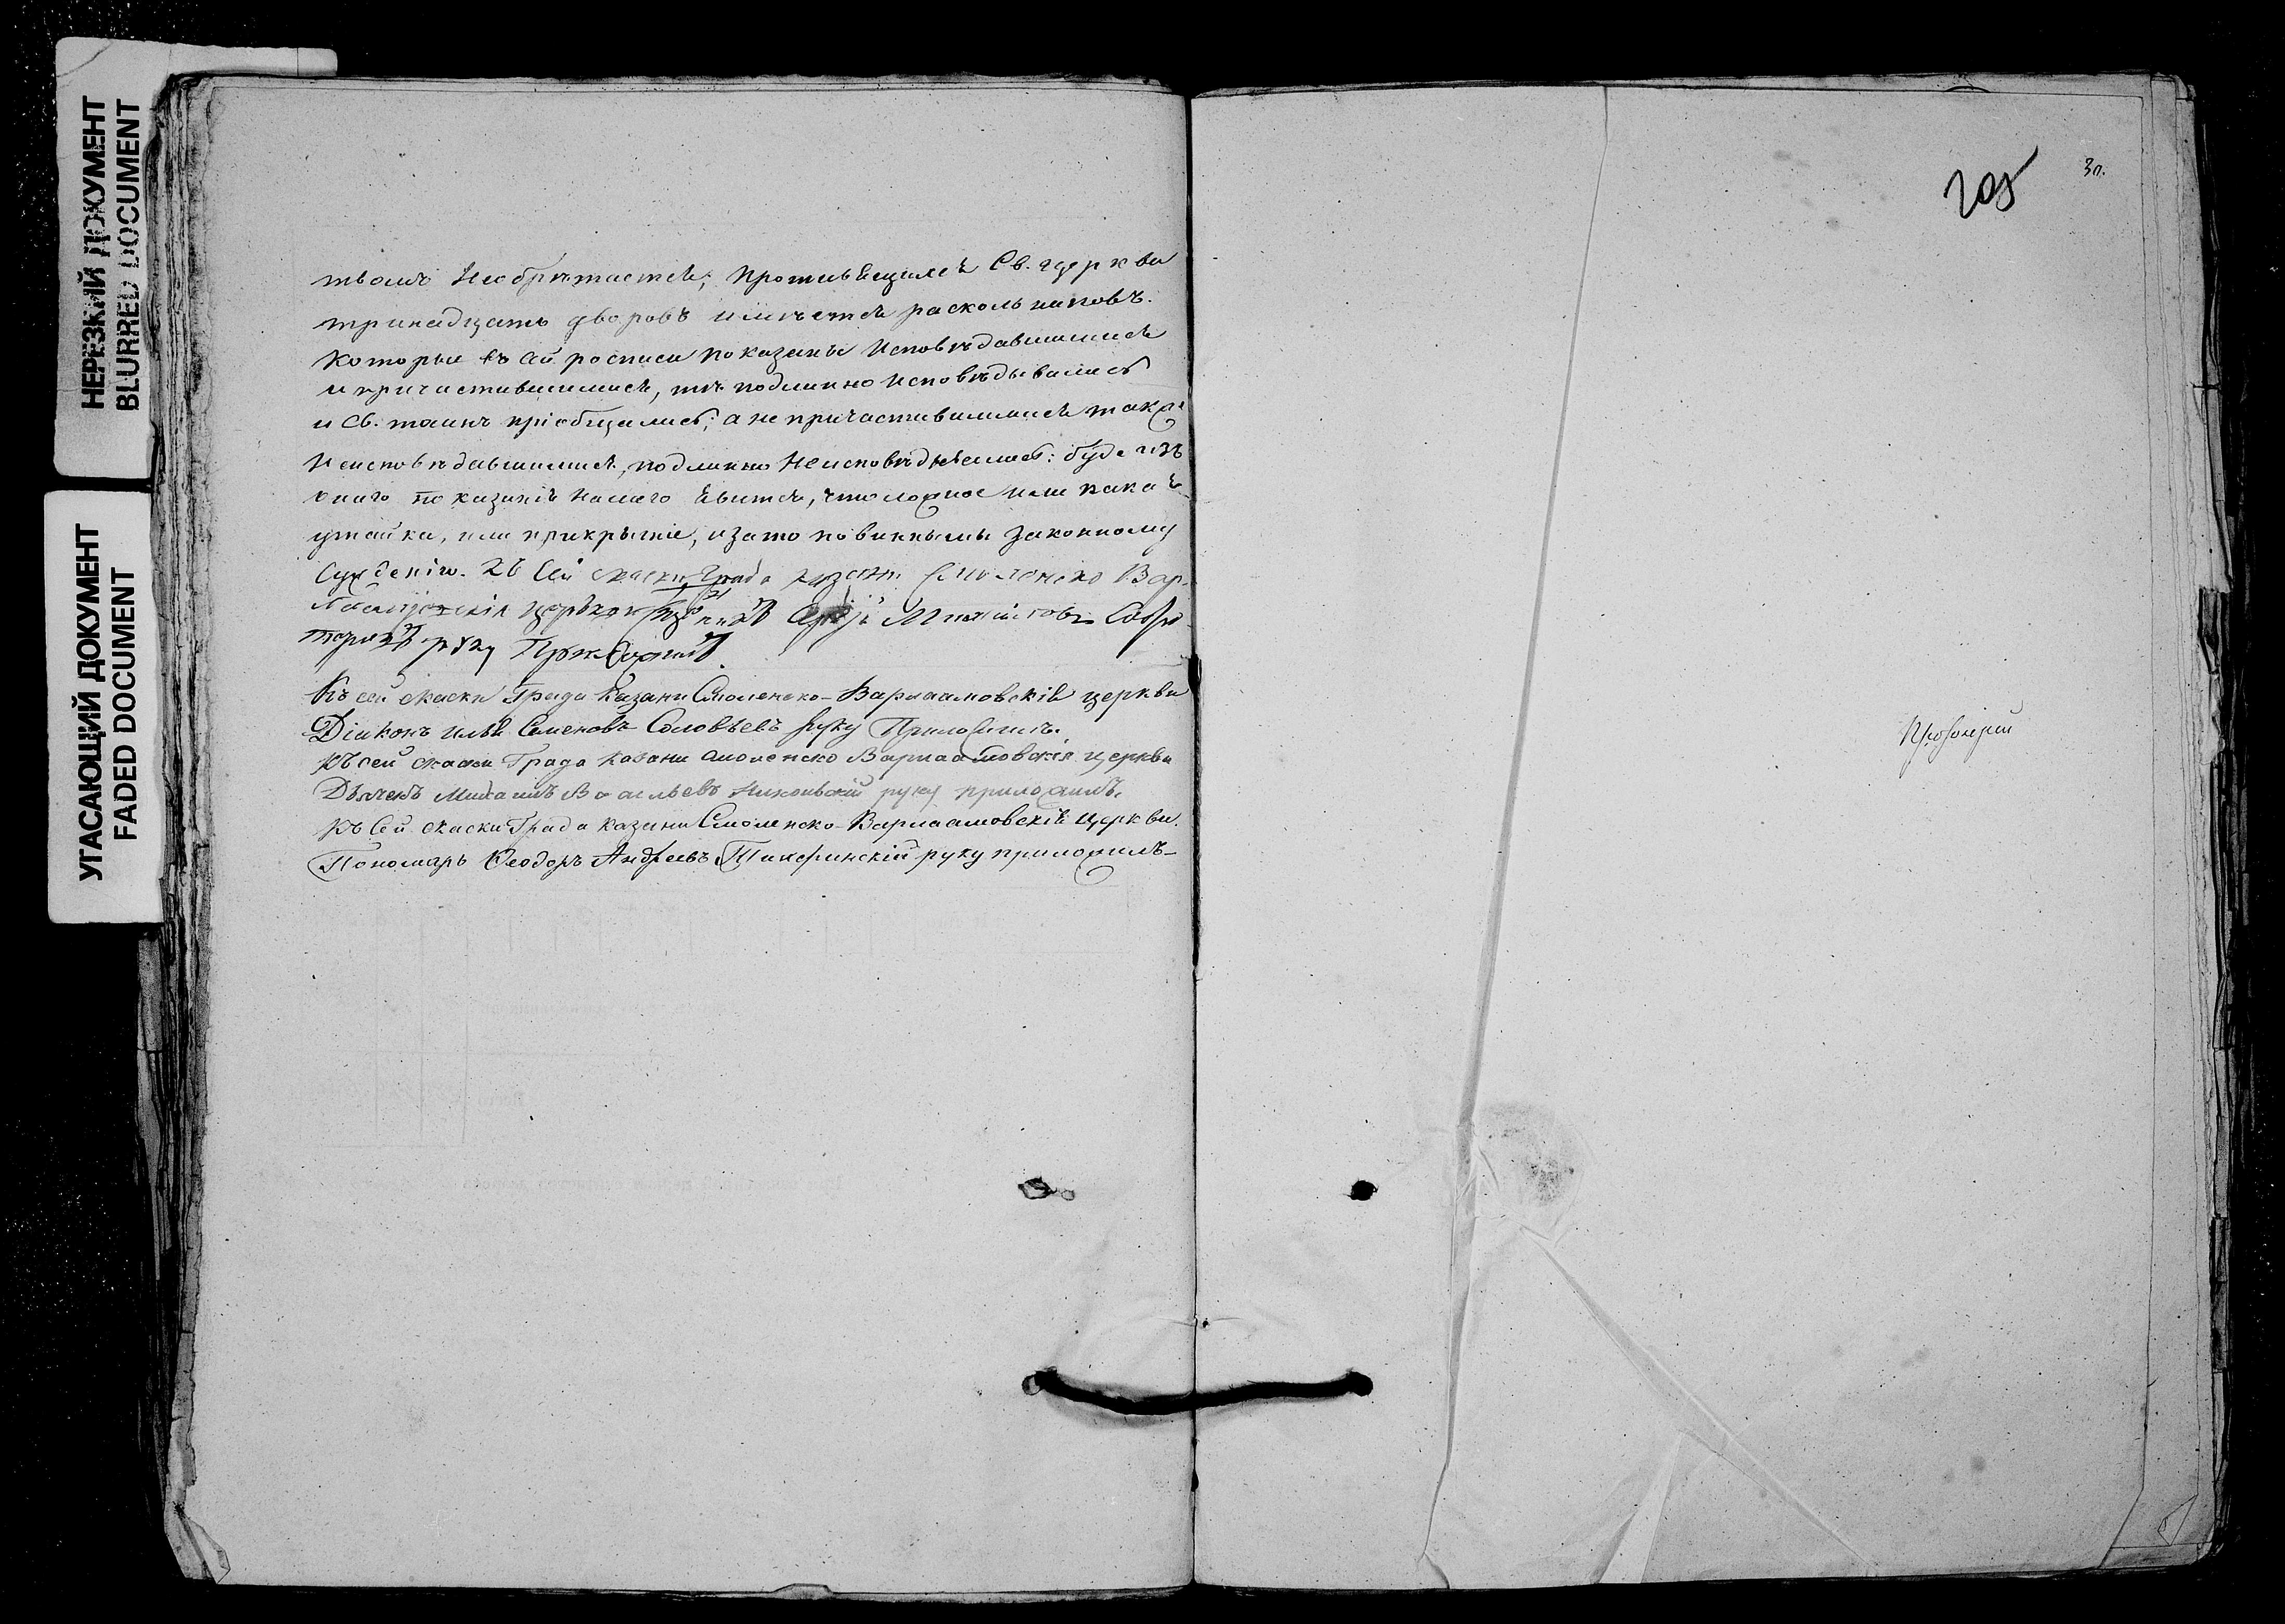 НЕРЕЗКИЙ ДОКУМЕНТ
BLURRED DOCUMENT
УГАСАЮЩИЙ ДОКУМЕНТ
FADED DOCUMENT
твомъ необрѣтается; противящихся Св. церкви
тринадцать дворовъ имѣется раскольниковъ.
Которые въ сей росписи показаны исповѣдавшимися
и причастившимися, тѣ подлинно исповѣдывались
и Св. таинъ пріобщались; а не причастившимися также
неисповѣдавшимися, подлинно неисповѣдывались: буде изъ
онаго показанія нашего явится, что ложное или какая
утайка, или прикрытіе, и зато повинны мы законному
сужденію. Къ сей скаски Града Казани Смоленско Вар-
церкви
руку Приложилъ.
Къ сей скаски Града Казани Смоленско-Варлаамовскія церкви
Діаконъ Илья Семеновъ Соловьевъ руку Приложилъ.
Къ сей скаски Града Казани Смоленско Варлаамовскія церкви
Дьячекъ Михаилъ Васильевъ Никольскій руку приложилъ.
Къ сей скаски Града Казани Смоленско-Варлаамовскія церкви.
Пономарь Ѳеодоръ Андреевъ руку приложилъ
205